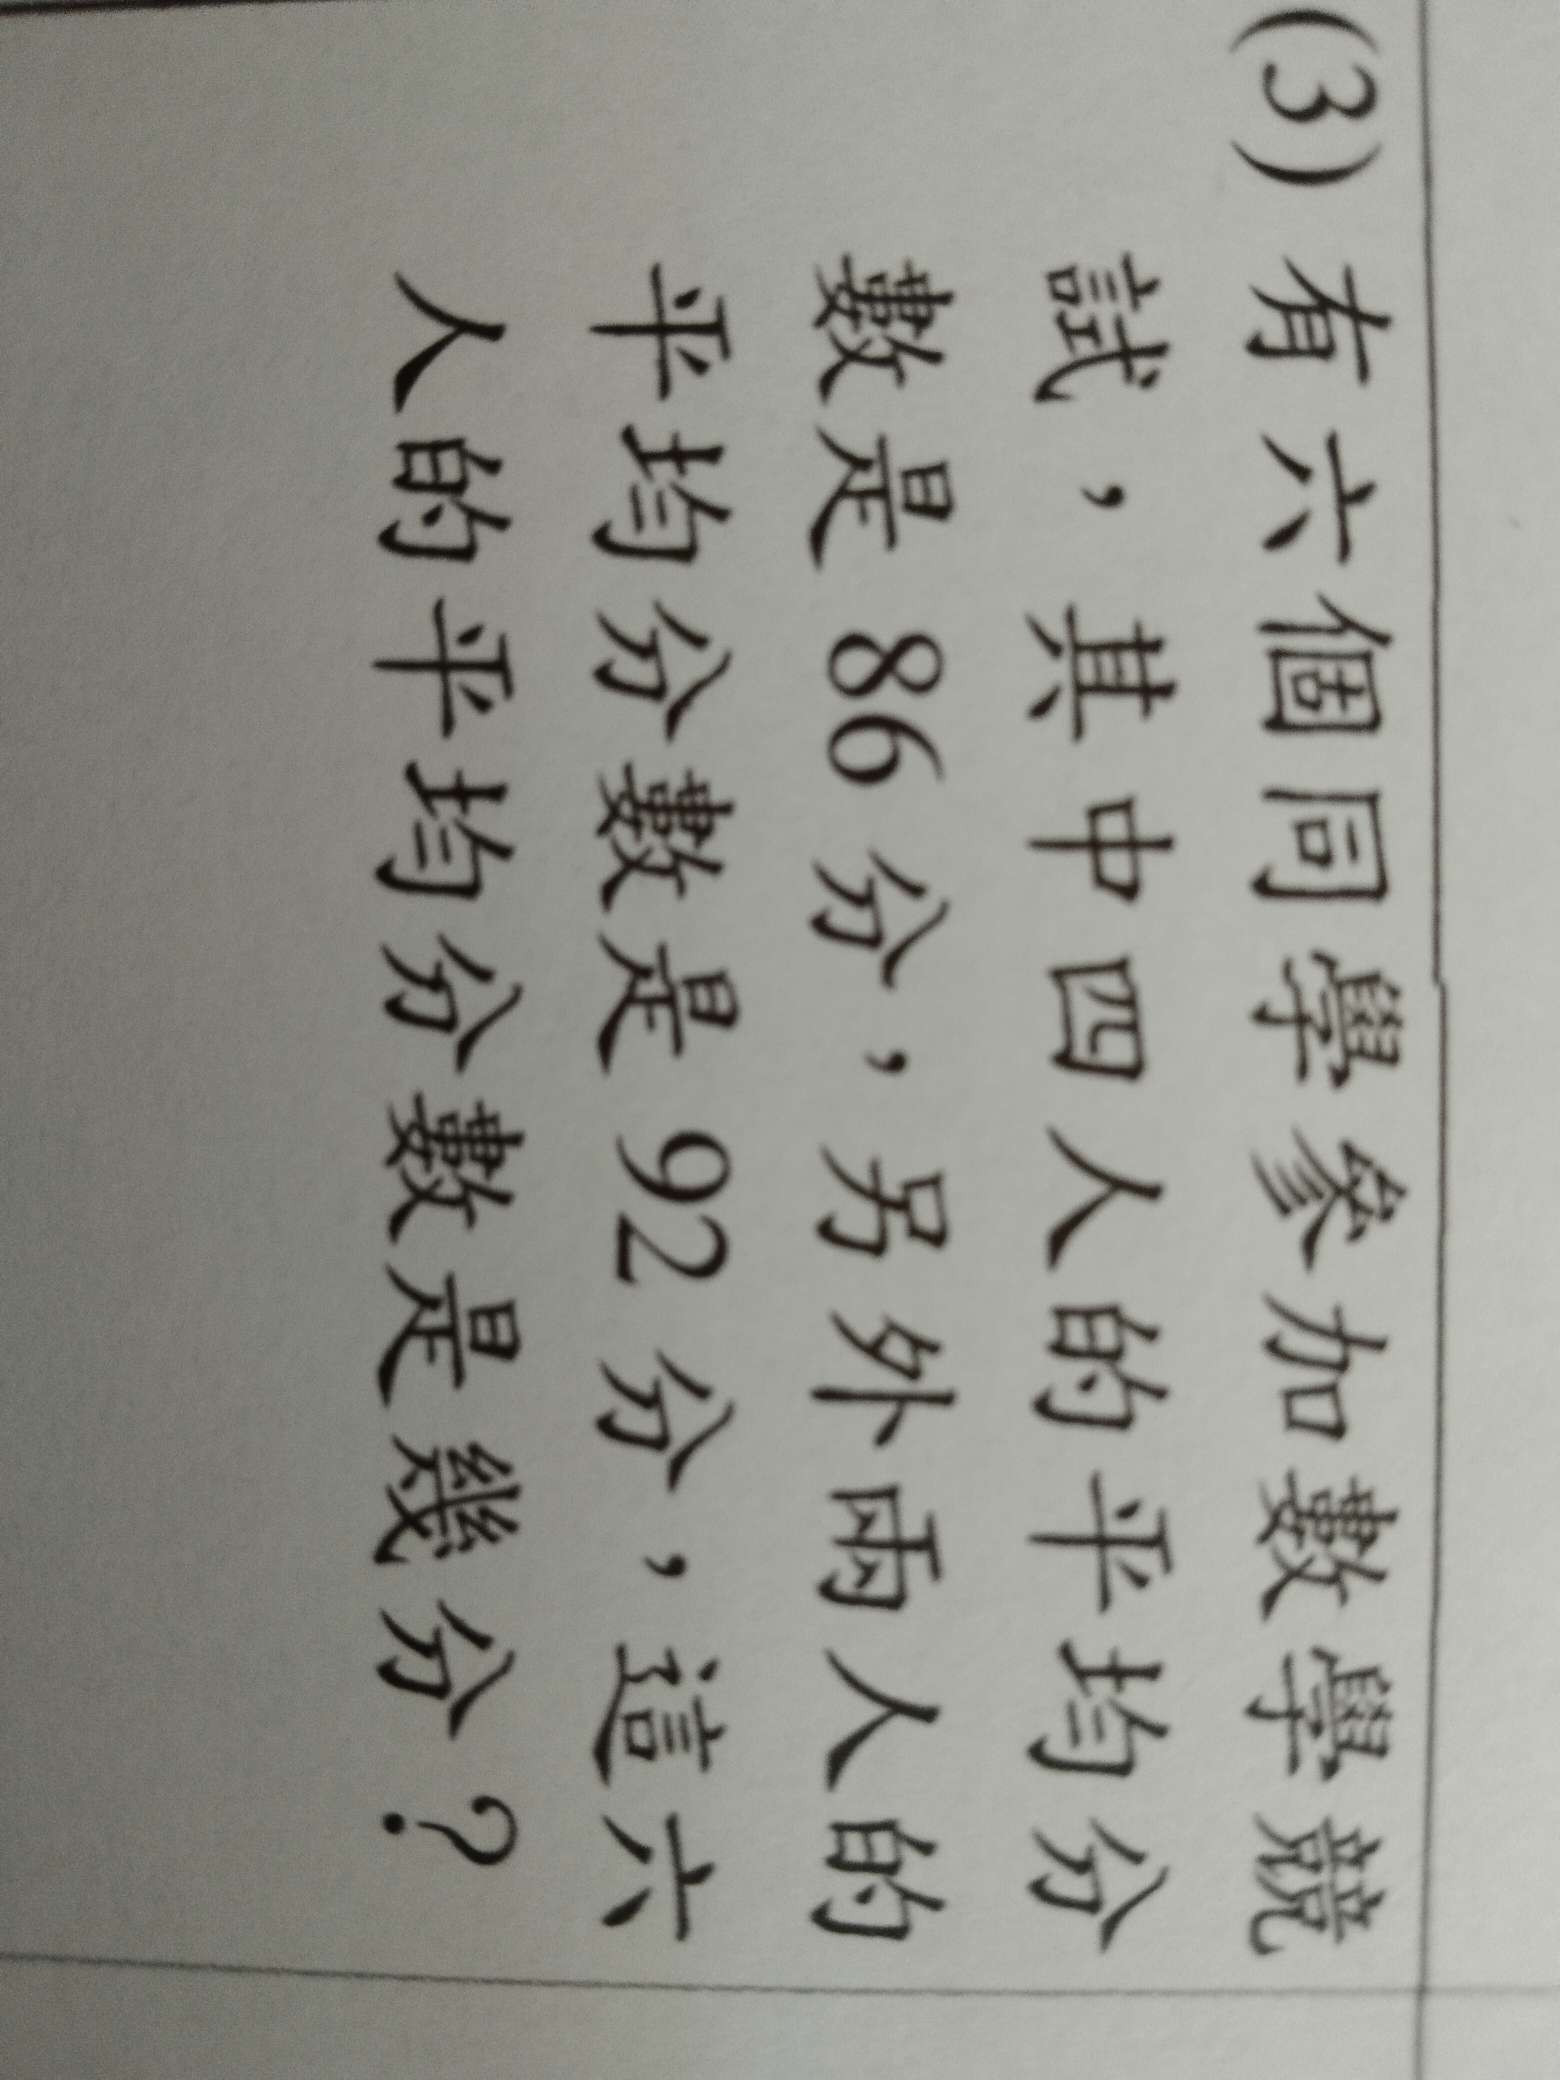 (3) 有六個同學參加數學競
試，其中四人的平均分
數是 86 分，另外兩人的
平均分數是 92 分，這六
人的平均分數是幾分？